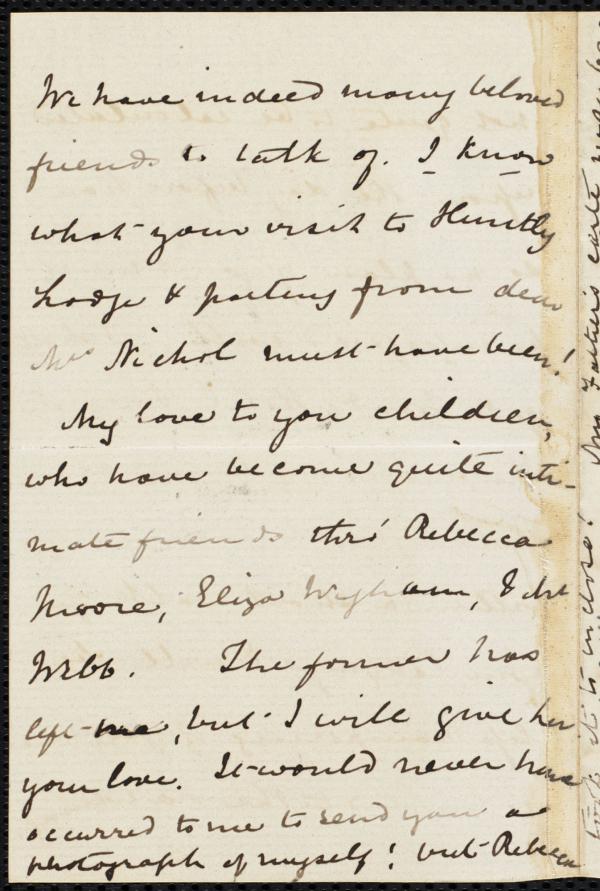 We have indeed many beloved
friends to talk of. I know
what your visit to Huntly
Lodge & parting from dear
Mrs Nichol must have been!
My love to you children,
who have become quite inti-
mate friends thro' Rebecca
Moore, Eliza Wigham, &
Webb. The former has
left me, but I will give her
your love. It would never have
occurred to me to send you a
photograph of myself! but Rebecca
took it to inclose! Father's carte